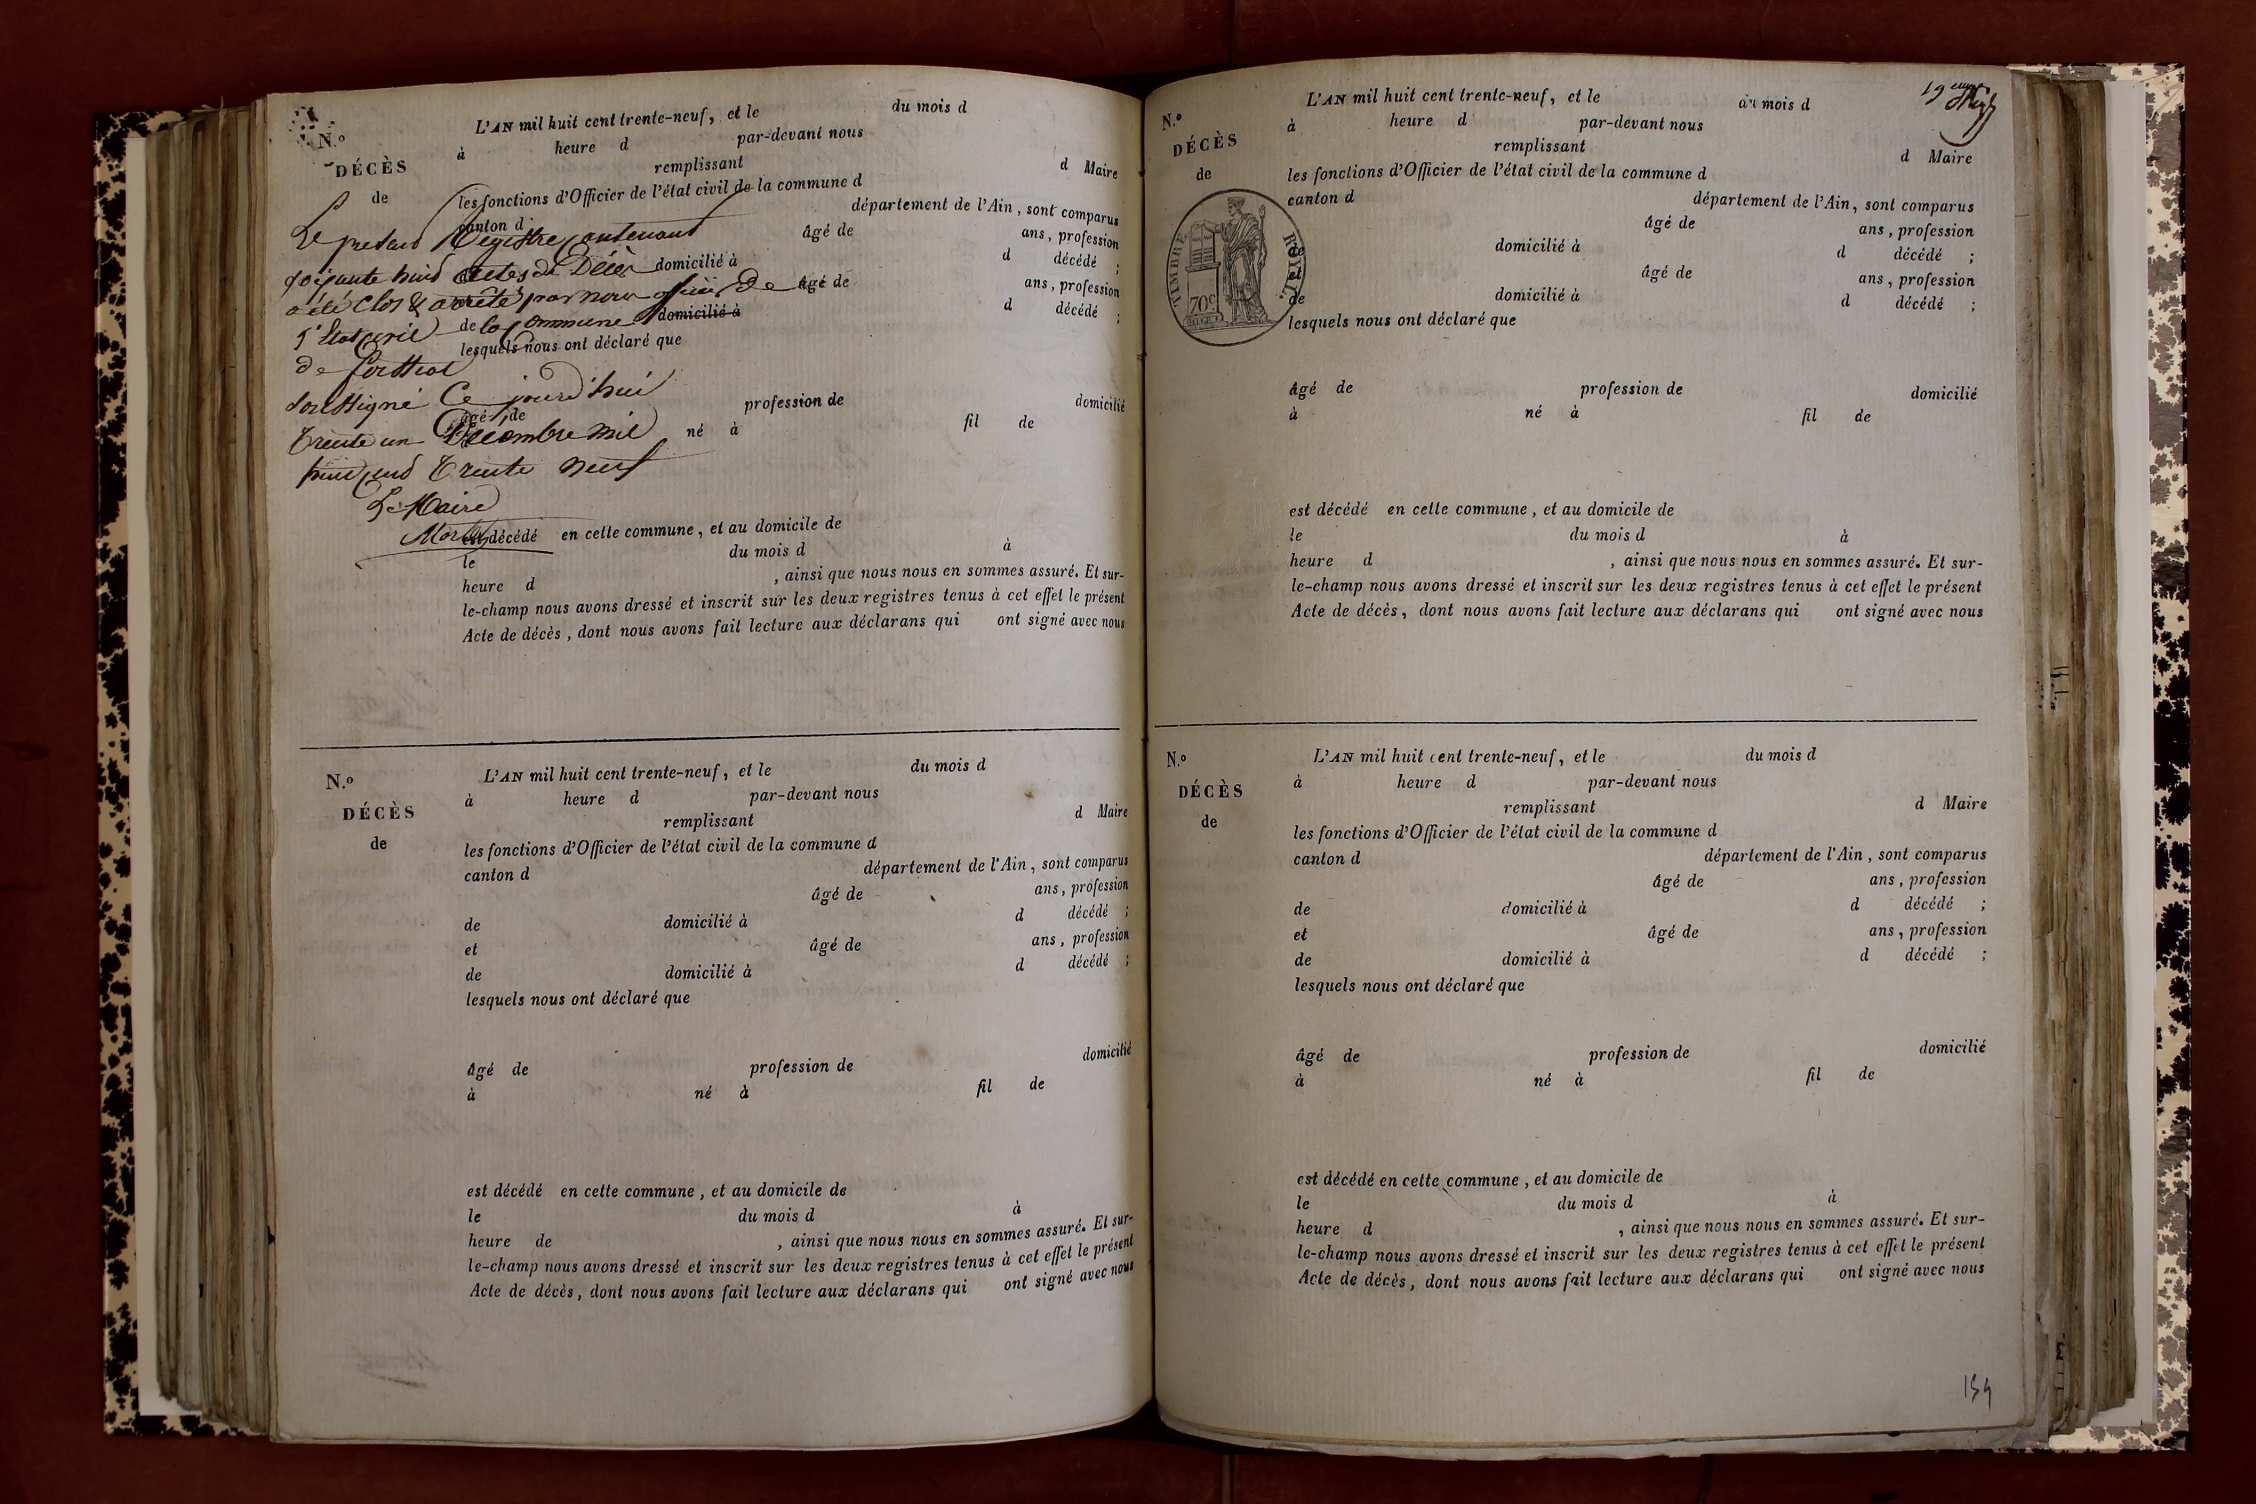 N.º
DÉCÈS
de
L'AN mil huit cent trente-neuf, et le du mois d
à heure d par-devant nous
remplissant d Maire
les fonctions d'Officier de l'état civil de la commune d
canton d département de l'Ain, sont comparus
âgé de ans, profession
domicilié à d décédé ;
âgé de ans, profession
de domicilié à d décédé ;
lesquels nous ont déclaré que
âgé de profession de domicilié
né à fil de
est décédé en cette commune, et au domicile de
le du mois d à
heure d , ainsi que nous nous en sommes assuré. Et sur-
le-champ nous avons dressé et inscrit sur les deux registres tenus à cet effet le présent
Acte de décès, dont nous avons fait lecture aux déclarans qui ont signé avec nous
Le présent Registre Contenant
soixante huit actes de Décès
a été Clos & arrêté par nous officier de
l'Etat civil de la Commune
de
soussigné Ce jourd'hui
trente un Décembre mil
huit cent trente neuf
Le Maire
N.º
DÉCÈS
de
L'AN mil huit cent trente-neuf, et le du mois d
à heure d par-devant nous
remplissant d Maire
les fonctions d'Officier de l'état civil de la commune d
canton d département de l'Ain, sont comparus
âgé de ans, profession
de domicilié à d décédé ;
et âgé de ans, profession
de domicilié à d décédé ;
lesquels nous ont déclaré que
âgé de profession de domicilié
à né à fil de
est décédé en cette commune, et au domicile de
le du mois d à
heure de , ainsi que nous nous en sommes assuré. Et sur-
le-champ nous avons dressé et inscrit sur les deux registres tenus à cet effet le présent
Acte de décès, dont nous avons fait lecture aux déclarans qui ont signé avec nous
19
N.º
DÉCÈS
de
TIMBRE ROYAL.
70 c
L'AN mil huit cent trente-neuf, et le du mois d
à heure d par-devant nous
remplissant d Maire
les fonctions d'Officier de l'état civil de la commune d
canton d département de l'Ain, sont comparus
âgé de ans, profession
domicilié à d décédé ;
âgé de ans, profession
de domicilié à d décédé ;
lesquels nous ont déclaré que
âgé de profession de domicilié
à né à fil de
est décédé en cette commune, et au domicile de
le du mois d à
heure d , ainsi que nous nous en sommes assuré. Et sur-
le-champ nous avons dressé et inscrit sur les deux registres tenus à cet effet le présent
Acte de décès, dont nous avons fait lecture aux déclarans qui ont signé avec nous
N.º
DÉCÈS
de
L'AN mil huit cent trente-neuf, et le du mois d
à heure d par-devant nous
remplissant d Maire
les fonctions d'Officier de l'état civil de la commune d
canton d département de l'Ain, sont comparus
âgé de ans, profession
de domicilié à d décédé ;
et âgé de ans, profession
de domicilié à d décédé ;
lesquels nous ont déclaré que
âgé de profession de domicilié
à né à fil de
est décédé en cette commune, et au domicile de
le du mois d à
heure d , ainsi que nous nous en sommes assuré. Et sur-
le-champ nous avons dressé et inscrit sur les deux registres tenus à cet effet le présent
Acte de décès, dont nous avons fait lecture aux déclarans qui ont signé avec nous